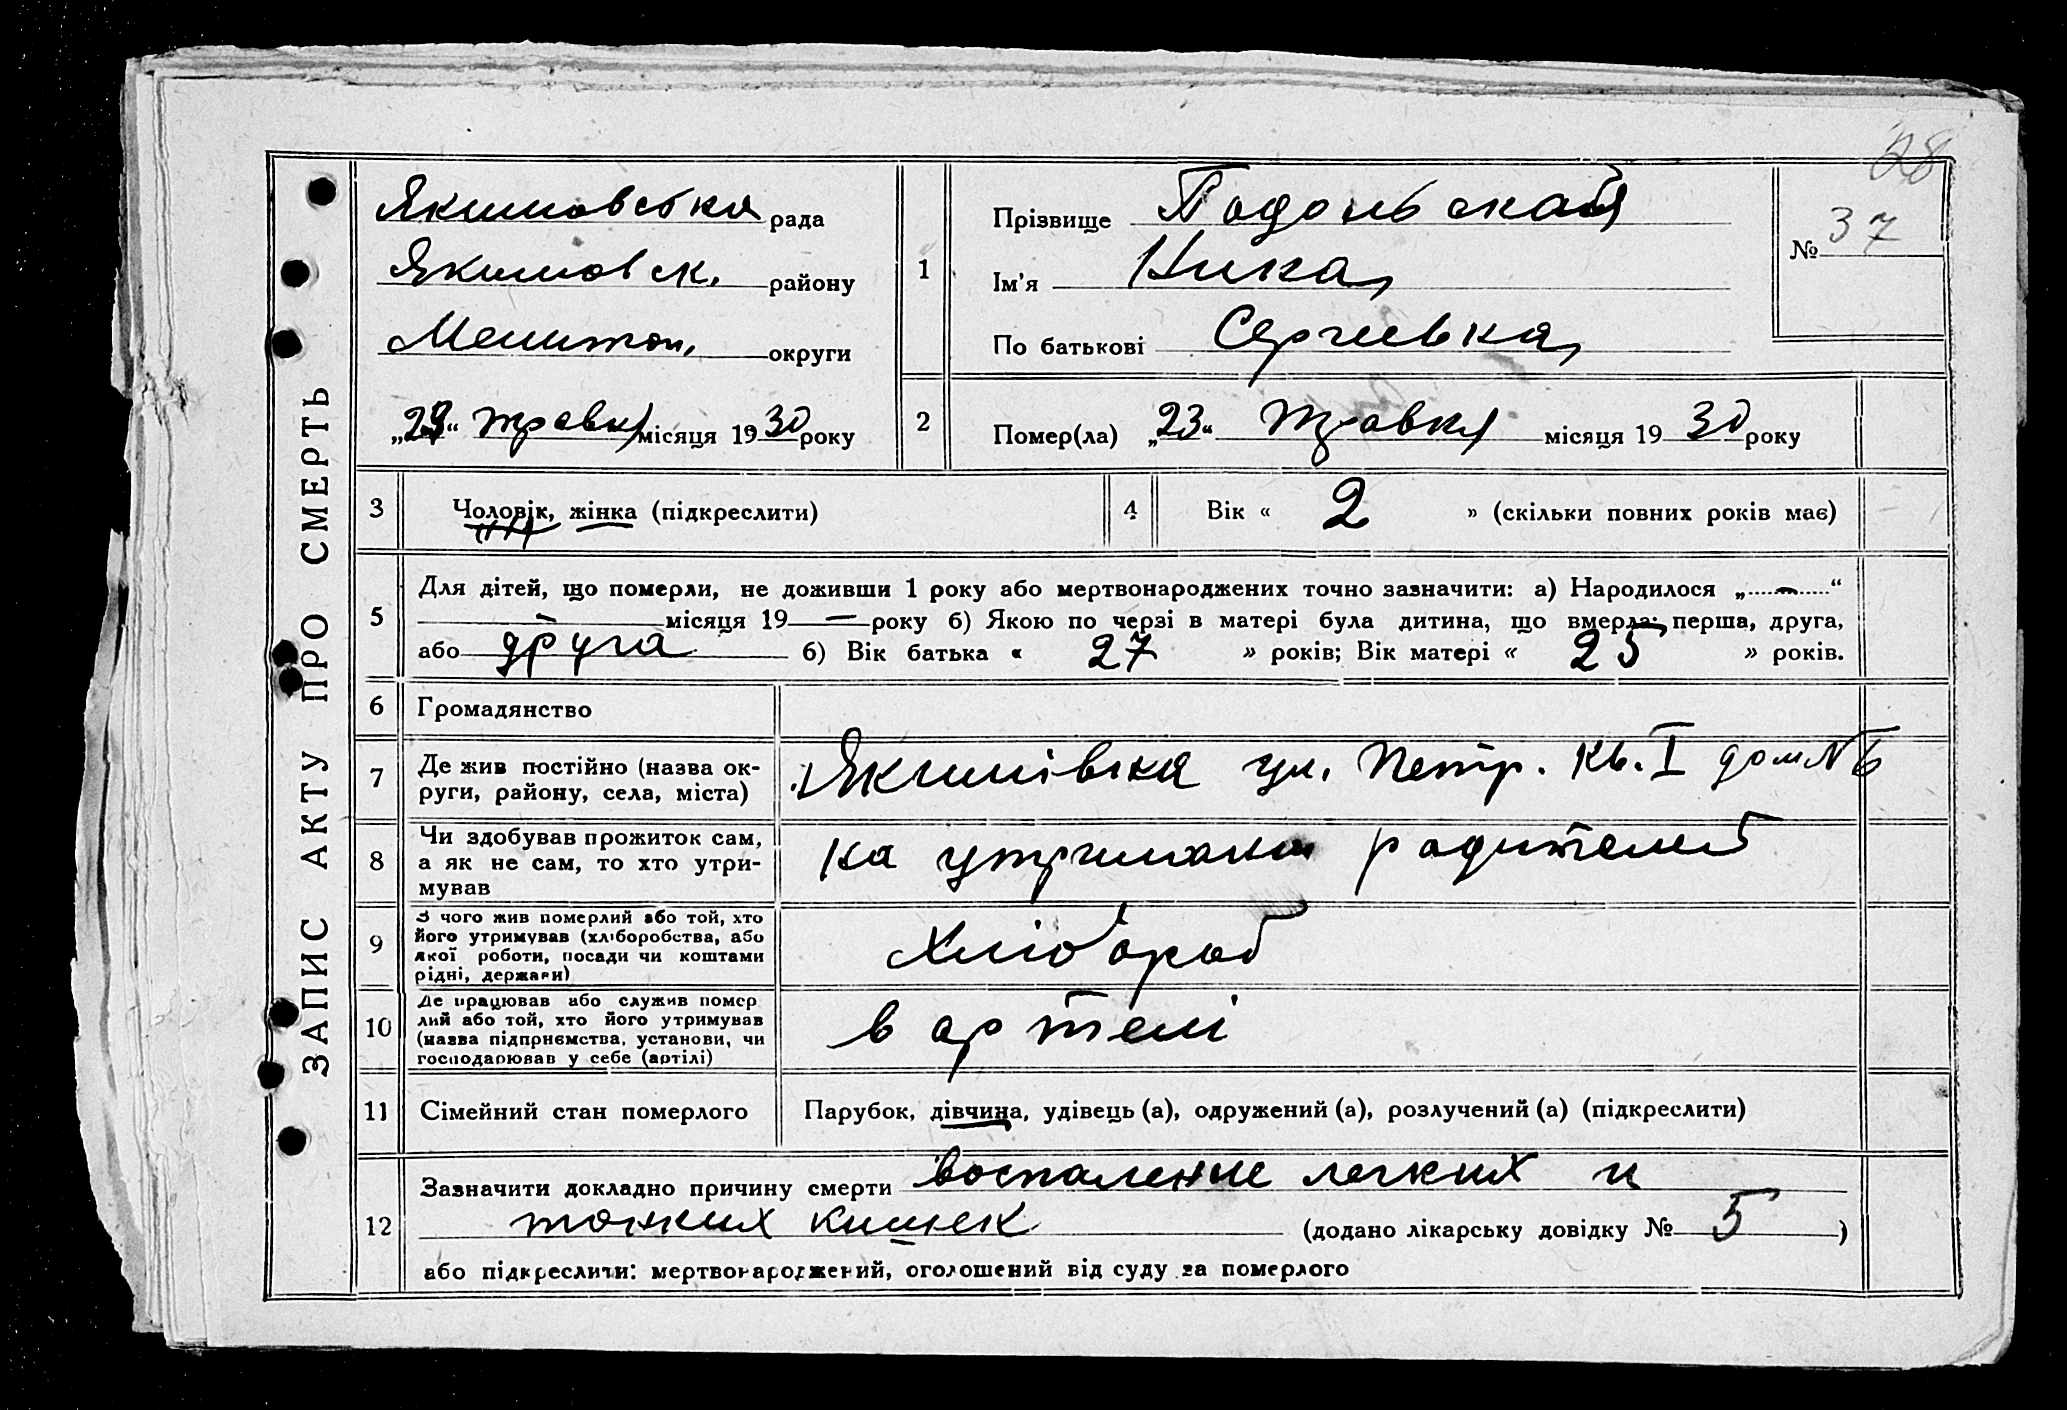 28
ЗАПИС АКТУ ПРО СМЕРТЬ
Якимовська рада
Якимовськ. району
Мелитоп. округи
„23“ травня місяця 1930 року
1
Прізвище Подольская
Ім'я Нина
По батькові Сергеевна
№ 37
2
Помер(ла) „23“ травня місяця 1930 року
3
Чоловік, жінка (підкреслити)
4
Вік « 2 » (скільки повних років має)
5
Для дітей, що померли, не доживши 1 року або мертвонароджених точно зазначити: а) Народилося „ — “
— місяця 19 — року б) Якою по черзі в матері була дитина, що вмерла: перша, друга,
або друга б) Вік батька « 27 » років; Вік матері « 25 » років.
6
Громадянство
7
Де жив постійно (назва ок-
руги, району, села, міста)
Якимівка ул. Петр. кв. I дом № 6
8
Чи здобував прожиток сам,
а як не сам, то хто утри-
мував
на утриманні родителей
9
З чого жив померлий або той, хто
його утримував (хліборобства, або
якої роботи, посади чи коштами
рідні, держави)
Хлібороб
10
Де працював або служив помер
лий або той, хто його утримував
(назва підприємства, установи, чи
господарював у себе (артілі)
в артелі
11
Сімейний стан померлого
Парубок, дівчина, удівець (а), одружений (а), розлучений (а) (підкреслити)
12
Зазначити докладно причину смерти воспаление легких и
тонких кишек (додано лікарську довідку № 5 )
або підкреслити: мертвонароджений, оголошений від суду за померлого